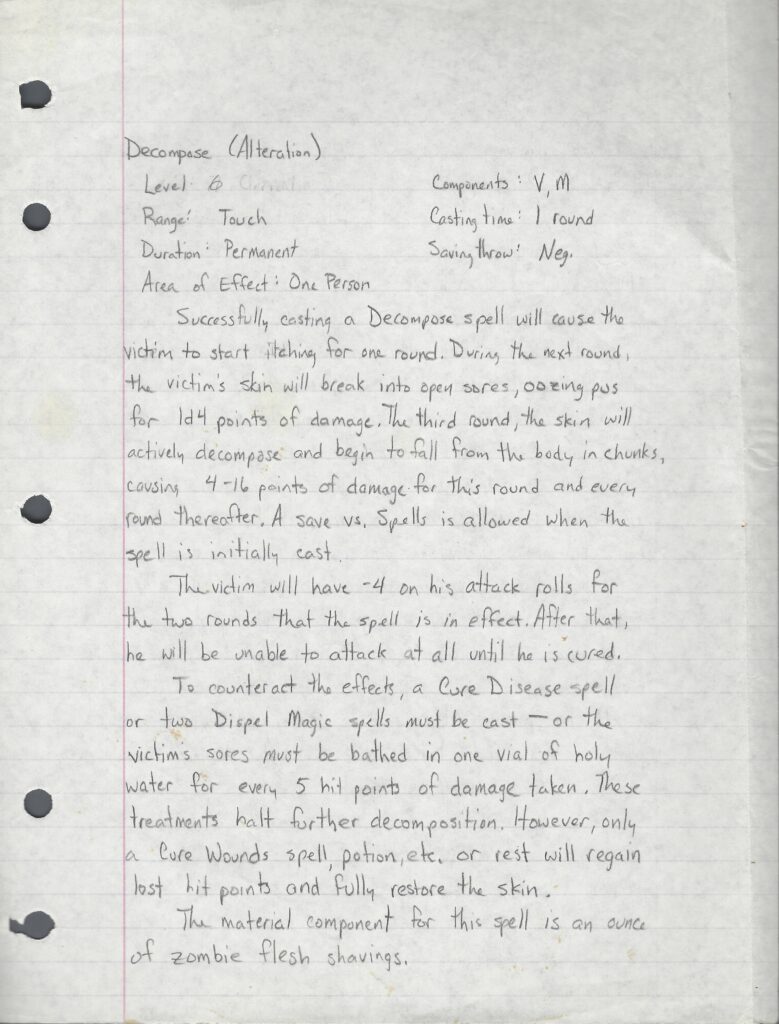 Decompose (Alteration)
Level: 6 Components: V, M
Range: Touch Casting time: 1 round
Duration: Permanent Saving throw: Neg.
Area of Effect: One Person
Successfully casting a Decompose spell will cause the
victim to start itching for one round. During the next round,
the victim's skin will break into open sores, oozing pus
for 1d4 points of damage. The third round, the skin will
actively decompose and begin to fall from the body in chunks,
causing 4-16 points of damage for this round and every
round thereafter. A save vs. Spells is allowed when the
spell is initially cast.
The victim will have -4 on his attack rolls for
the two rounds that the spell is in effect. After that,
he will be unable to attack at all until he is cured.
To counteract the effects, a Cure Disease spell
or two Dispel Magic spells must be cast — or the
victim's sores must be bathed in one vial of holy
water for every 5 hit points of damage taken. These
treatments halt further decomposition. However, only
a Cure Wounds spell, potion, etc. or rest will regain
lost hit points and fully restore the skin.
The material component for this spell is an ounce
of zombie flesh shavings.